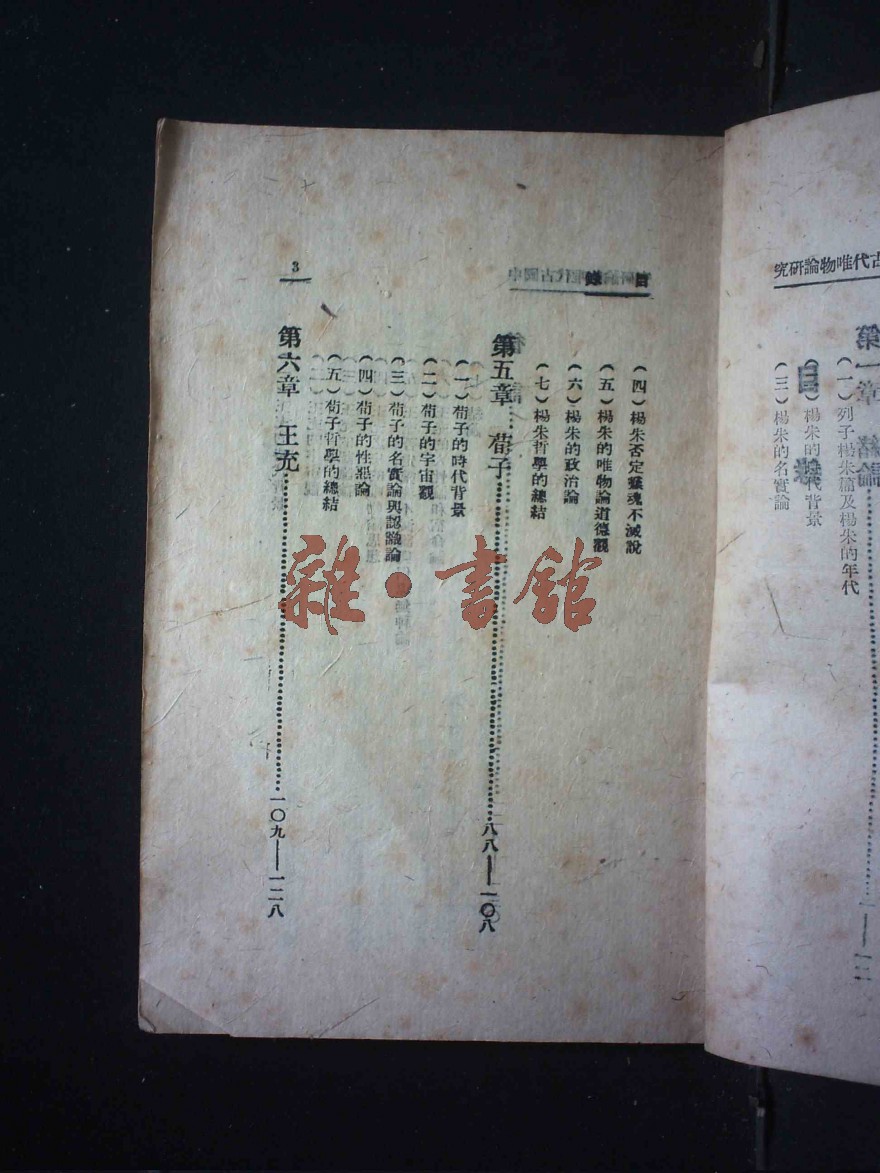 古代唯物論研究
第一章 緒論
(一)列子楊朱篇及楊朱的年代
(二)楊朱的 背景
(三)楊朱的名實論
目錄
(四)楊朱否定靈魂不滅說
(五)楊朱的唯物論道德觀
(六)楊朱的政治論
(七)楊朱哲學的總結
第五章 荀子……八八——一〇八
(一)荀子的時代背景
(二)荀子的宇宙觀
(三)荀子的名實論與認識論
(四)荀子的性惡論
(五)荀子哲學的總結
第六章 王充……一〇九——一二八
3
雜·書館